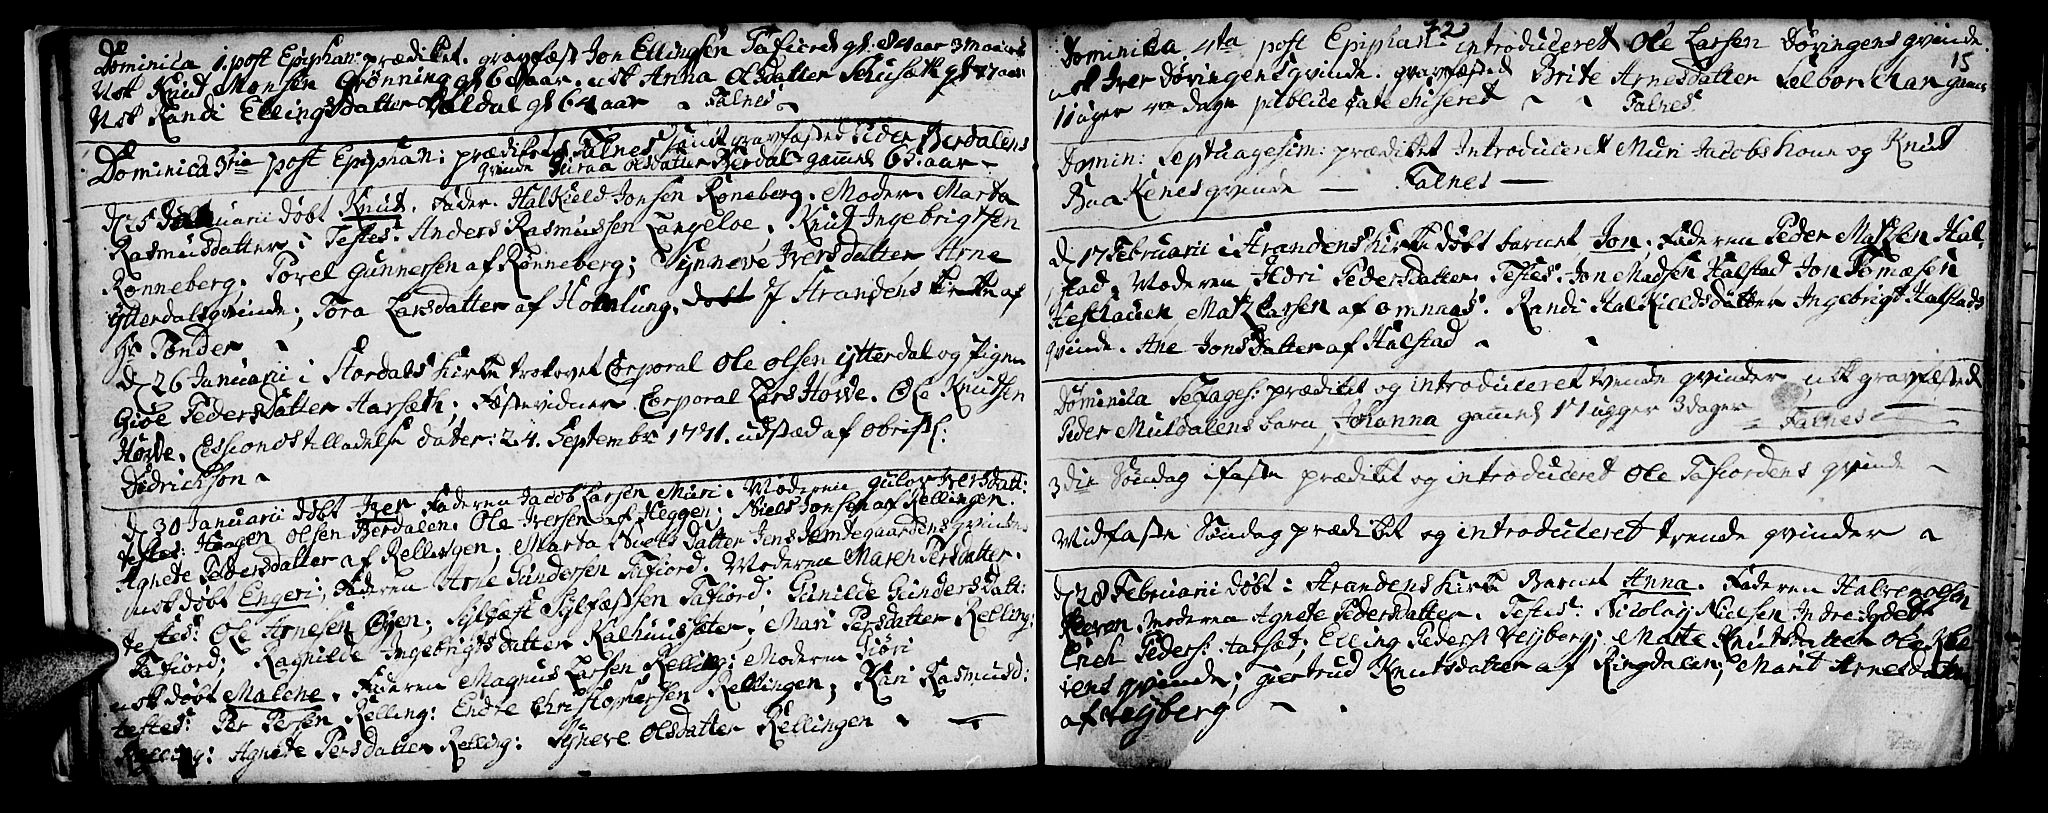 Dominica 1. post Epiphan: prædiket. gravfæst Jon Ellingsen Tafiord gl: 84 aar 3 maaned
Nok Knud Monsen Grønning gl 6 aar. nok Anna Olsdatter gl 47 aar
Nok Randi Ellingsdatter Valdal gl 64 aar Falnes
Dominica 3tia post Epiphan: prædiket Falnes samt gravfæsted Peder Berdalens
qvinde Olsdatter Berdal gammel 63 aar
d 25 Januarii døbt Knud. Fader. Halkield Jonsen Røneberg. Moder. Marta
Rasmusdatter; Testes: Anders Rasmussen Langeloe. Knud Ingebrigtsen
Rønneberg. Torel Gunnersen af Rønneberg; Synneve Iversdatter Arne
Ytterdals qvinde; Tora Larsdatter af Homlung. døbt i Strandens Kirke af
Hr Tønder
d 26 Januarii i Stordals Kirke trolovet Corporal Ole Olsen ytterdal og Pigen
Gioe Pedersdatter Aarseth; Fæstevidner Corporal Lars Hovde. Ole Knudsen
Hovde. Cessions tilladelse dater: 24 Septembr 1771. udstæd af obristl:
Didrickson
d 30 Januarii døbt Iver. Faderen Jacob Larsen Muri. Moderen Gulov Iversdatt:
testes: Haagen Olsen Berdalen. Ole Iversen af Heggen; Niels Jonsen af Rellingen.
Agnete Pedersdatter af Rellingen; Marta Nielsdatter Jens gaardens qvinde
nok døbt Engeri, Faderen Arne Gundersen Tafiord. Moderen Maren Persdatter.
testes: Ole Arnesen Øyen; Sylfæst Sylfæstsen Tafiord. Gunilde Gundersdatt:
Tafiord; Ragnilde Ingebrigtsdatter Kalhussæter. Mari Persdatter Relling:
nok døbt Malene. Faderen Magnus Larsen Relling; Moderen Siøri
testes: Per Persen Relling: Endre Christophersen Rellingen; Kari Rasmusd:
Relling; Agnete Persdatter Relling: Syneve Olsdatter Rellingen
72
15
Dominica 4ta post Epiphan: introduceret Ole Larsen Døvingens qvinde.
nok Iver Døvingens qvinde. gravfæsted Brite Arnesdatter gamel
11 uger 4 dage publice catechiseret Falnes
Domin: Septuagesim: prædiket Introduceret Muri Jacobs kone og Knud
Baakenes qvinde — Falnes —
d 17 Februarii i Strandens Kirke døbt barnet Jon. Faderen Peder Matzen Hal-
stad, Moderen Pedersdatter. Testes: Jon Madsen Halstad Jon Tomæsen
Hesthauen Matz Larsen af omnaas. Randi Halkieldsdatter Ingebrigt Halstads
qvinde. Ane Jonsdatter af Halstad
Dominica Sexages: prædiket og introduceret tvende qvinder, nok gravfæsted
Peder Muldalens barn Johanna gamel 17 ugger 3 dager Falnes
3die Søndag i faste prædiket og introduceret Ole Tafiordens qvinde
Midfaste Søndag prædiket og introduceret trende qvinder
d 28 Februarii døbt i Strandens kirke Barnet Anna. Faderen Halvor Olsen
Moderen Agnete Pedersdatter. Testes: Nicolay Nielsen
Erich Peders: Aarsæt; Elling Peders: Veiberg; Marte Knutsdatter Ole
qvinde; giertrud Knutsdatter af Ringdalen; Marit Arnesdatter
af Veyberg